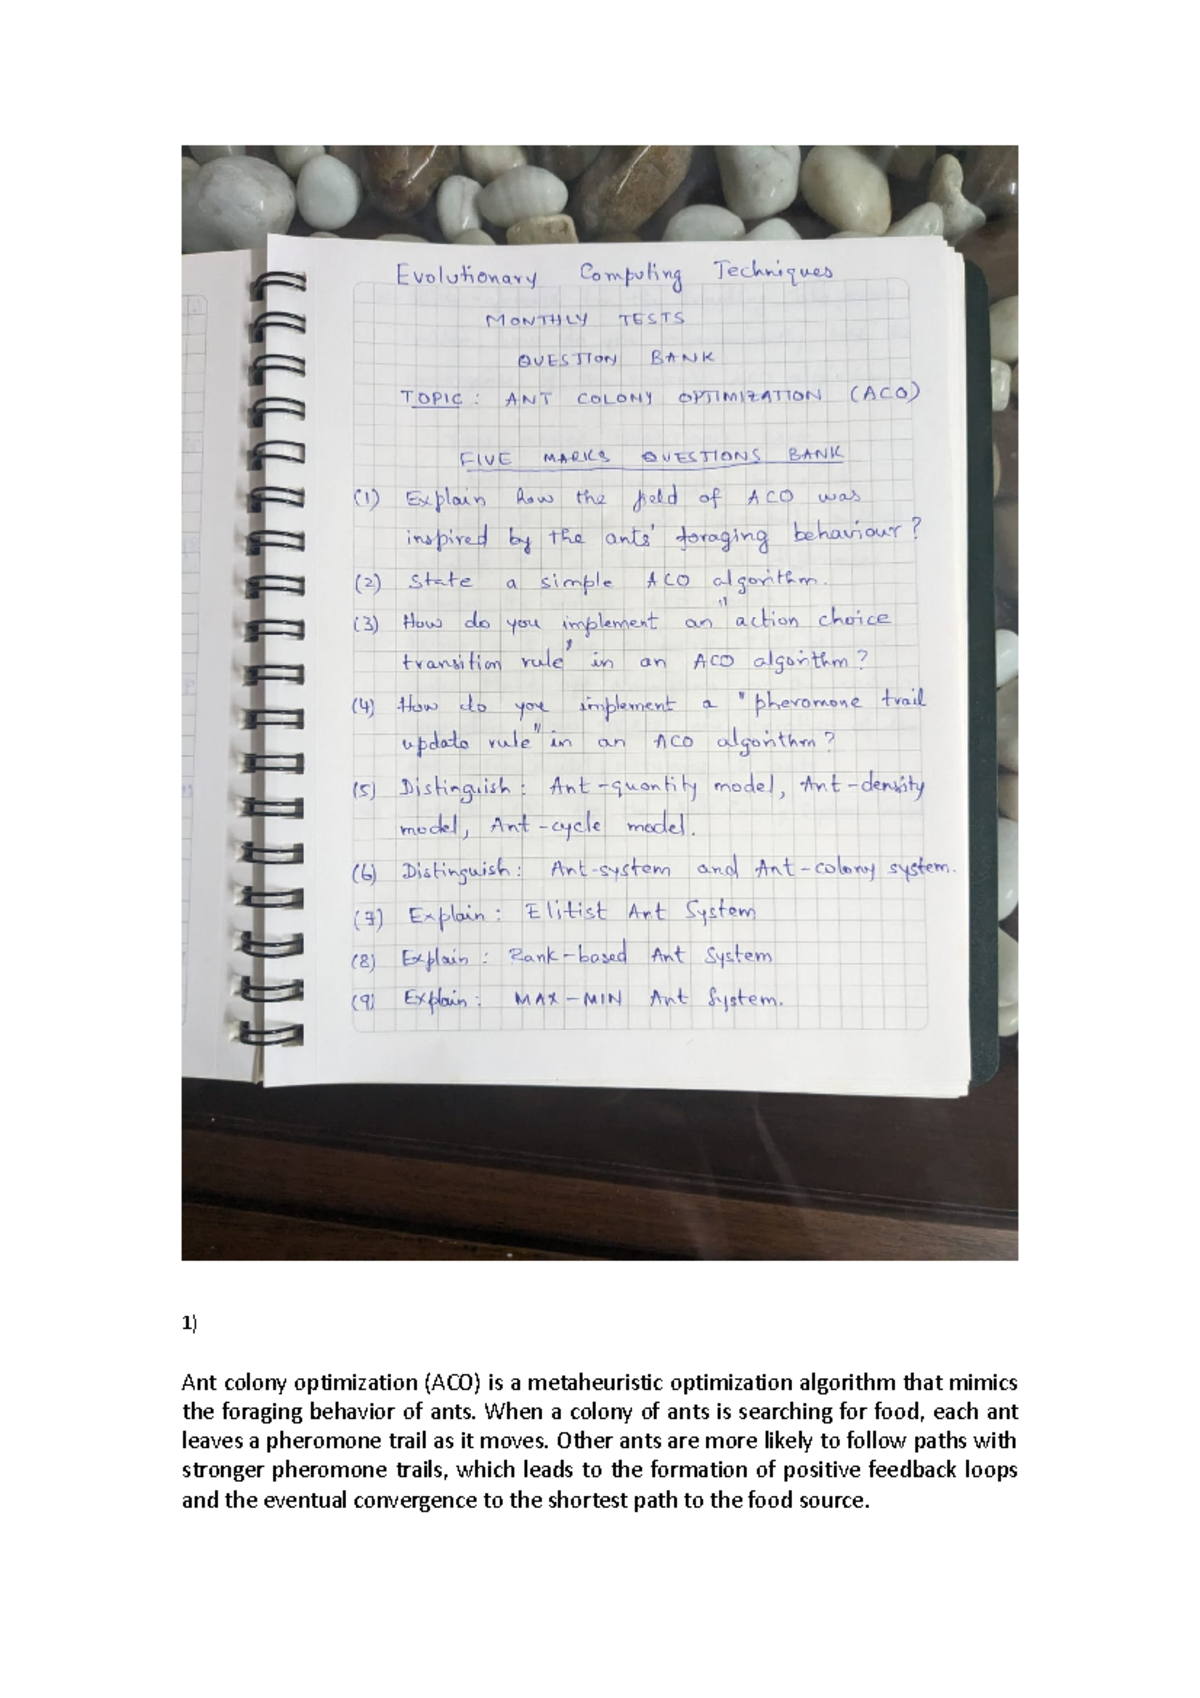 Evolutionary Computing Techniques
MONTHLY TESTS
QUESTION BANK
TOPIC : ANT COLONY OPTIMIZATION (ACO)
FIVE MARKS QUESTIONS BANK
(1) Explain how the field of ACO was
inspired by the ants' foraging behaviour?
(2) State a simple ACO algorithm.
(3) How do you implement an "action choice
transition rule" in an ACO algorithm?
(4) How do you implement a "pheromone trail
update rule" in an ACO algorithm?
(5) Distinguish : Ant-quantity model, Ant-density
model, Ant-cycle model.
(6) Distinguish : Ant-system and Ant-colony system.
(7) Explain : Elitist Ant System
(8) Explain : Rank-based Ant System
(9) Explain : MAX-MIN Ant System.
1)
Ant colony optimization (ACO) is a metaheuristic optimization algorithm that mimics
the foraging behavior of ants. When a colony of ants is searching for food, each ant
leaves a pheromone trail as it moves. Other ants are more likely to follow paths with
stronger pheromone trails, which leads to the formation of positive feedback loops
and the eventual convergence to the shortest path to the food source.